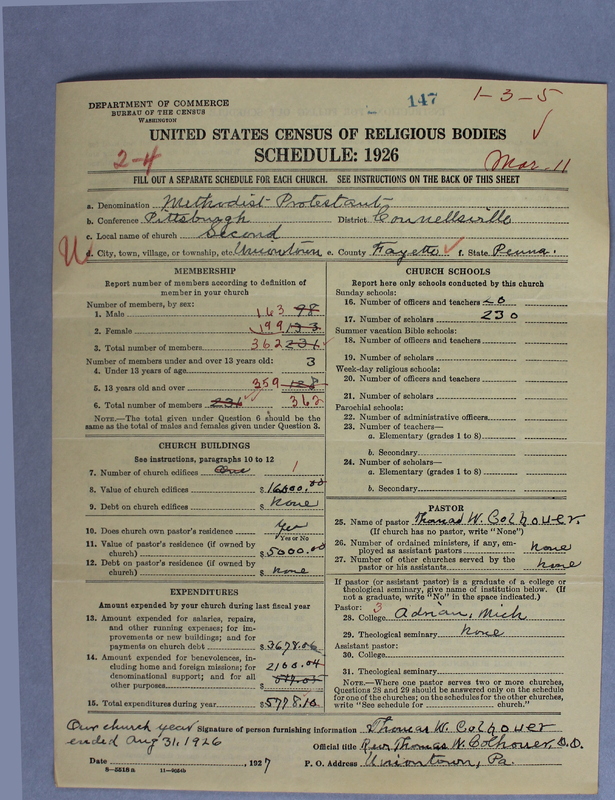 147
1-3-5
DEPARTMENT OF COMMERCE
BUREAU OF THE CENSUS
WASHINGTON
UNITED STATES CENSUS OF RELIGIOUS BODIES
SCHEDULE: 1926
2-4
Mar. 11
FILL OUT A SEPARATE SCHEDULE FOR EACH CHURCH. SEE INSTRUCTIONS ON THE BACK OF THIS SHEET
a. Denomination Methodist Protestant
b. Conference Pittsburgh District Connellsville
c. Local name of church Second
d. City, town, village, or township, etc. Uniontown e. County Fayette f. State Penna.
MEMBERSHIP
Report number of members according to definition of
member in your church
Number of members, by sex:
1. Male 163 98
2. Female 199 133
3. Total number of members 362 231
Number of members under and over 13 years old:
4. Under 13 years of age 3
5. 13 years old and over 359 128
6. Total number of members 231 362
NOTE.—The total given under Question 6 should be the
same as the total of males and females given under Question 3.
CHURCH BUILDINGS
See instructions, paragraphs 10 to 12
7. Number of church edifices One 1
8. Value of church edifices $16000.00
9. Debt on church edifices $ None
10. Does church own pastor's residence Yes
Yes or No
11. Value of pastor's residence (if owned by
church) $5000.00
12. Debt on pastor's residence (if owned by
church) $ None
EXPENDITURES
Amount expended by your church during last fiscal year
13. Amount expended for salaries, repairs,
and other running expenses; for im-
provements or new buildings; and for
payments on church debt $3678.06
14. Amount expended for benevolences, in-
cluding home and foreign missions; for
denominational support; and for all
other purposes 2100.04
15. Total expenditures during year $5778.10
CHURCH SCHOOLS
Report here only schools conducted by this church
Sunday schools:
16. Number of officers and teachers 20
17. Number of scholars 230
Summer vacation Bible schools:
18. Number of officers and teachers
19. Number of scholars
Week-day religious schools:
20. Number of officers and teachers
21. Number of scholars
Parochial schools:
22. Number of administrative officers
23. Number of teachers—
a. Elementary (grades 1 to 8)
b. Secondary
24. Number of scholars—
a. Elementary (grades 1 to 8)
b. Secondary
PASTOR
25. Name of pastor Thomas W. Colhouer.
(If church has no pastor, write "None")
26. Number of ordained ministers, if any, em-
ployed as assistant pastors None
27. Number of other churches served by the
pastor or his assistants None
If pastor (or assistant pastor) is a graduate of a college or
theological seminary, give name of institution below. (If
not a graduate, write "No" in the space indicated.)
Pastor: 3
28. College Adrian, Mich
29. Theological seminary None
Assistant pastor:
30. College
31. Theological seminary
NOTE.—Where one pastor serves two or more churches,
Questions 28 and 29 should be answered only on the schedule
for one of the churches; on the schedules for the other churches,
write "See schedule for church."
Our church year
ended Aug 31, 1926
Signature of person furnishing information Thomas W. Colhouer
Official title Rev. Thomas W. Colhouer, D.D.
Date , 1927 P. O. Address Uniontown, Pa.
8—5518a 11—9034b